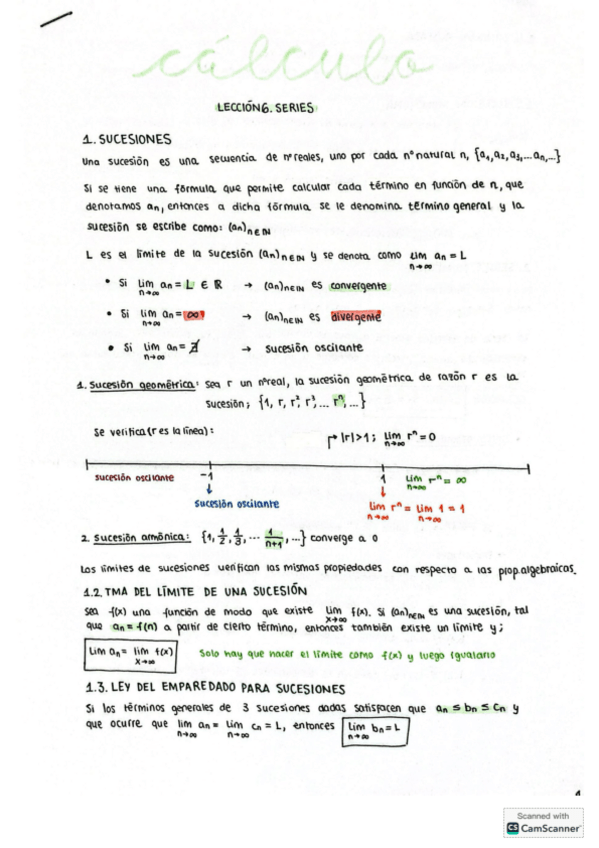 cálculo
LECCIÓN 6. SERIES
1. SUCESIONES
Una sucesión es una secuencia de nºreales, uno por cada nºnatural n, {a₁, a₂, a₃, ... aₙ, ...}
Si se tiene una fórmula que permite calcular cada término en función de n, que
denotamos aₙ, entonces a dicha fórmula se le denomina término general y la
sucesión se escribe como: (aₙ)ₙ∈ℕ
L es el límite de la sucesión (aₙ)ₙ∈ℕ y se denota como lim aₙ = L
n→∞
• Si lim aₙ = L ∈ ℝ → (aₙ)ₙ∈ℕ es convergente
n→∞
• Si lim aₙ = ∞ → (aₙ)ₙ∈ℕ es divergente
n→∞
• Si lim aₙ = ∄ → sucesión oscilante
n→∞
1. Sucesión geométrica: sea r un nºreal, la sucesión geométrica de razón r es la
sucesión; {1, r, r², r³, ... rⁿ, ...}
Se verifica (r es la línea): |r|>1; lim rⁿ = 0
n→∞
sucesión oscilante -1 1 lim rⁿ = ∞
n→∞
sucesión oscilante lim rⁿ = lim 1 = 1
n→∞ n→∞
2. Sucesión armónica: {1, 1/2, 1/3, ... 1/n+1, ...} converge a 0
Los límites de sucesiones verifican las mismas propiedades con respecto a las prop.algebraicas.
1.2. TMA DEL LÍMITE DE UNA SUCESIÓN
Sea f(x) una función de modo que existe lim f(x). Si (aₙ)ₙ∈ℕ es una sucesión, tal
x→∞
que aₙ = f(n) a partir de cierto término, entonces también existe un límite y;
Lim aₙ = lim f(x) Solo hay que hacer el límite como f(x) y luego igualarlo
x→∞
1.3. LEY DEL EMPAREDADO PARA SUCESIONES
Si los términos generales de 3 sucesiones dadas satisfacen que aₙ ≤ bₙ ≤ cₙ y
que ocurre que lim aₙ = lim cₙ = L, entonces lim bₙ = L
n→∞ n→∞ n→∞
1
Scanned with
CS CamScanner